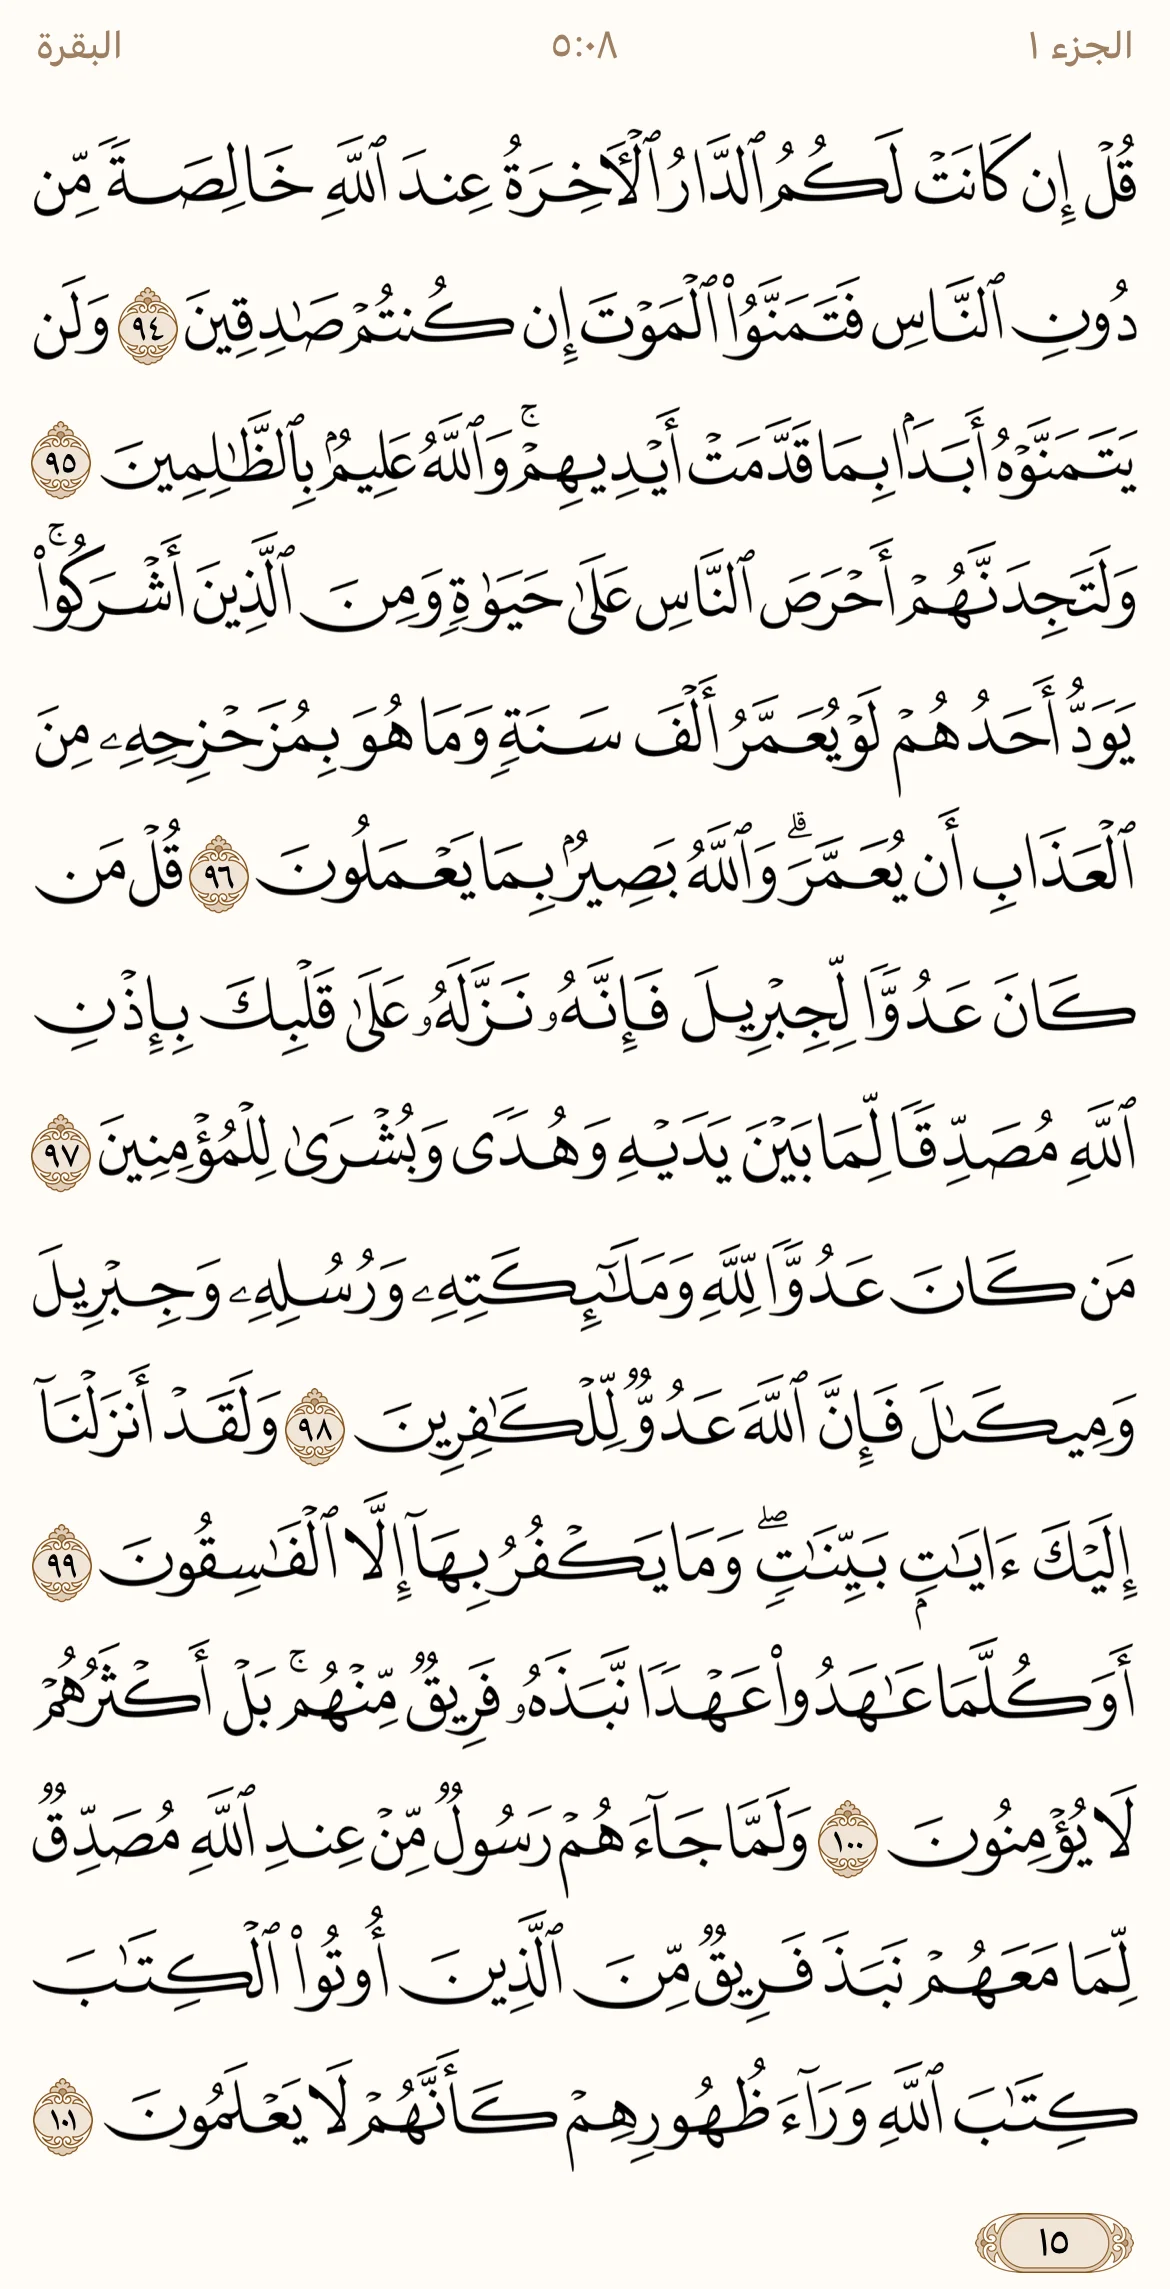 الجزء ١ ٥:٠٨ البقرة
قُلْ إِن كَانَتْ لَكُمُ ٱلدَّارُ ٱلْأَخِرَةُ عِندَ ٱللَّهِ خَالِصَةً مِّن
دُونِ ٱلنَّاسِ فَتَمَنَّوُا۟ ٱلْمَوْتَ إِن كُنتُمْ صَـٰدِقِينَ ٩٤ وَلَن
يَتَمَنَّوْهُ أَبَدَۢا بِمَا قَدَّمَتْ أَيْدِيهِمْ ۚ وَٱللَّهُ عَلِيمٌۢ بِٱلظَّـٰلِمِينَ ٩٥
وَلَتَجِدَنَّهُمْ أَحْرَصَ ٱلنَّاسِ عَلَىٰ حَيَوٰةٍ وَمِنَ ٱلَّذِينَ أَشْرَكُوا۟ ۚ
يَوَدُّ أَحَدُهُمْ لَوْ يُعَمَّرُ أَلْفَ سَنَةٍ وَمَا هُوَ بِمُزَحْزِحِهِۦ مِنَ
ٱلْعَذَابِ أَن يُعَمَّرَ ۗ وَٱللَّهُ بَصِيرٌۢ بِمَا يَعْمَلُونَ ٩٦ قُلْ مَن
كَانَ عَدُوًّا لِّجِبْرِيلَ فَإِنَّهُۥ نَزَّلَهُۥ عَلَىٰ قَلْبِكَ بِإِذْنِ
ٱللَّهِ مُصَدِّقًا لِّمَا بَيْنَ يَدَيْهِ وَهُدًى وَبُشْرَىٰ لِلْمُؤْمِنِينَ ٩٧
مَن كَانَ عَدُوًّا لِّلَّهِ وَمَلَـٰٓئِكَتِهِۦ وَرُسُلِهِۦ وَجِبْرِيلَ
وَمِيكَىٰلَ فَإِنَّ ٱللَّهَ عَدُوٌّ لِّلْكَـٰفِرِينَ ٩٨ وَلَقَدْ أَنزَلْنَآ
إِلَيْكَ ءَايَـٰتٍۭ بَيِّنَـٰتٍ ۖ وَمَا يَكْفُرُ بِهَآ إِلَّا ٱلْفَـٰسِقُونَ ٩٩
أَوَكُلَّمَا عَـٰهَدُوا۟ عَهْدًا نَّبَذَهُۥ فَرِيقٌ مِّنْهُم ۚ بَلْ أَكْثَرُهُمْ
لَا يُؤْمِنُونَ ١٠٠ وَلَمَّا جَآءَهُمْ رَسُولٌ مِّنْ عِندِ ٱللَّهِ مُصَدِّقٌ
لِّمَا مَعَهُمْ نَبَذَ فَرِيقٌ مِّنَ ٱلَّذِينَ أُوتُوا۟ ٱلْكِتَـٰبَ
كِتَـٰبَ ٱللَّهِ وَرَآءَ ظُهُورِهِمْ كَأَنَّهُمْ لَا يَعْلَمُونَ ١٠١
١٥